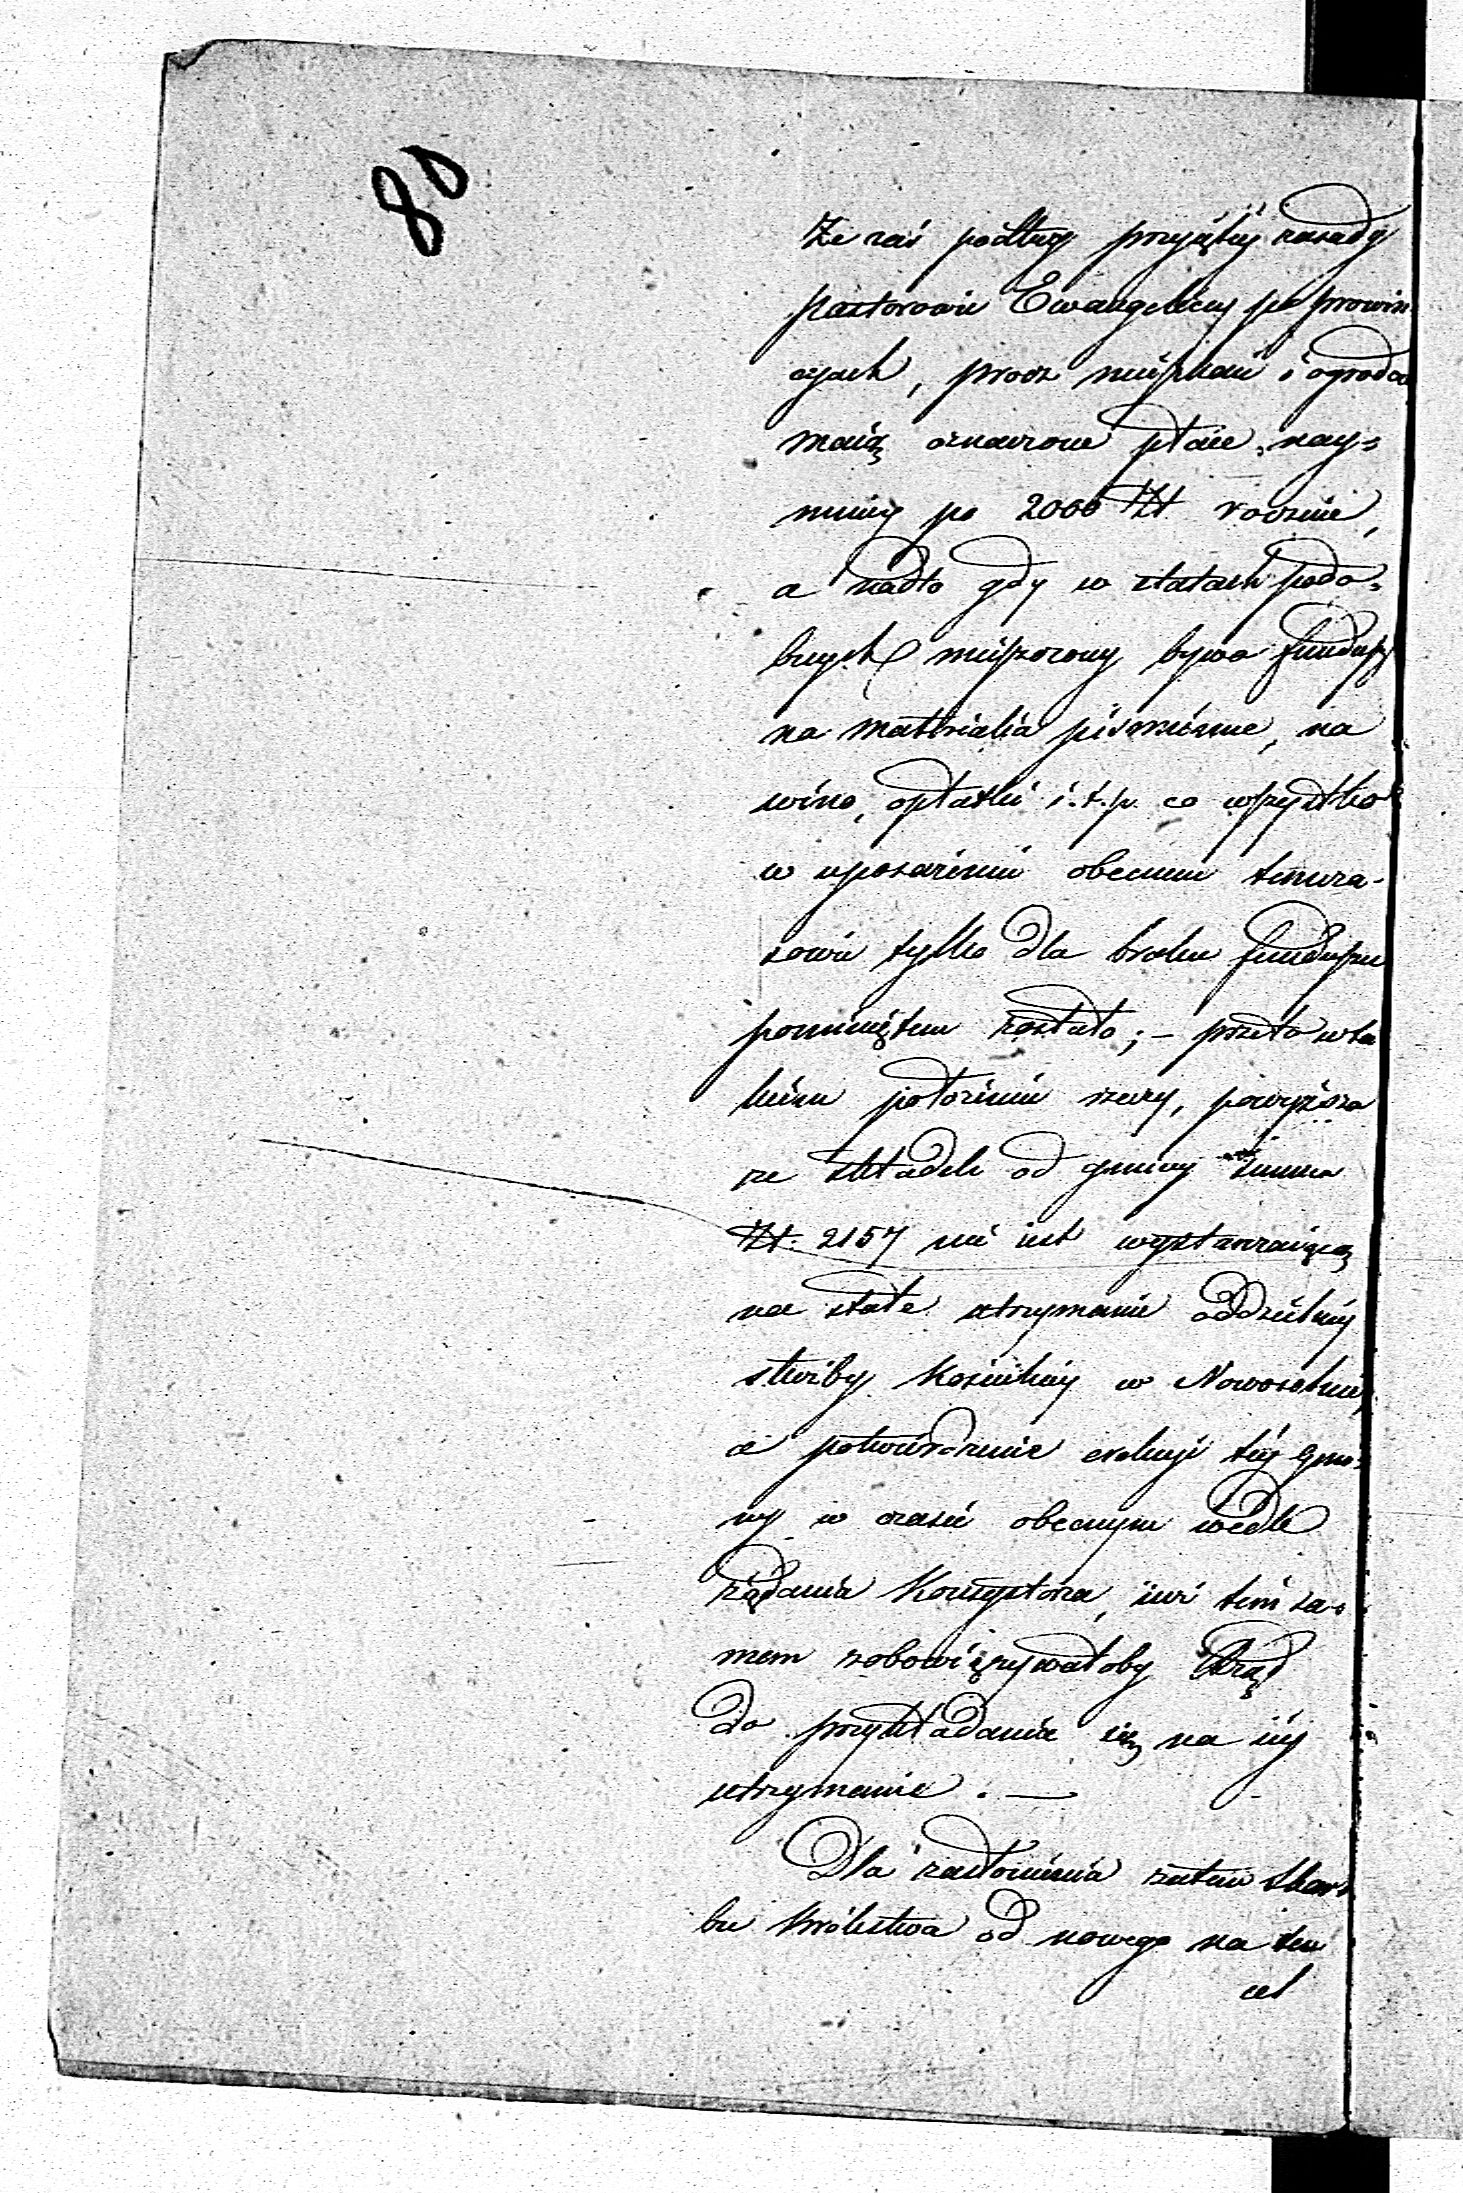 80
Że zaś podług przyjętéj zasady
pastorowie Ewangeliccy po prowin
cyach, prócz mieszkań i ogrodów
maią oznaczone płace, nay=
mniéy po 2000 Zł rocznie,
a nadto gdy w etatach podo=
bnych mieszczony bywa fundusz
na materialia piśmienne, na
wino, opłatki i.t.p. co wszystko
w uposażeniu obecnem tymcza-
sowie tylko dla braku funduszu
pominiętem zostało; – przeto w ta
kiém położeniu rzeczy, powyższa
ze składek od gminy summa
Zł. 2157 nie iest wystarczaiącą
na stałe utrzymanie oddzielnéy
służby Kościelnéy w Nowosolnéy,
a potwierdzenie erekcyi téy gmi=
ny w czasie obecnym wedle
żądania Konsystorza, iuż tém sa=
mem zobowięzywałoby Rząd
do przykładania się na iéy
utrzymanie. —
Dla zasłonienia zatem Skar=
bu Królestwa od nowego na ten
cel